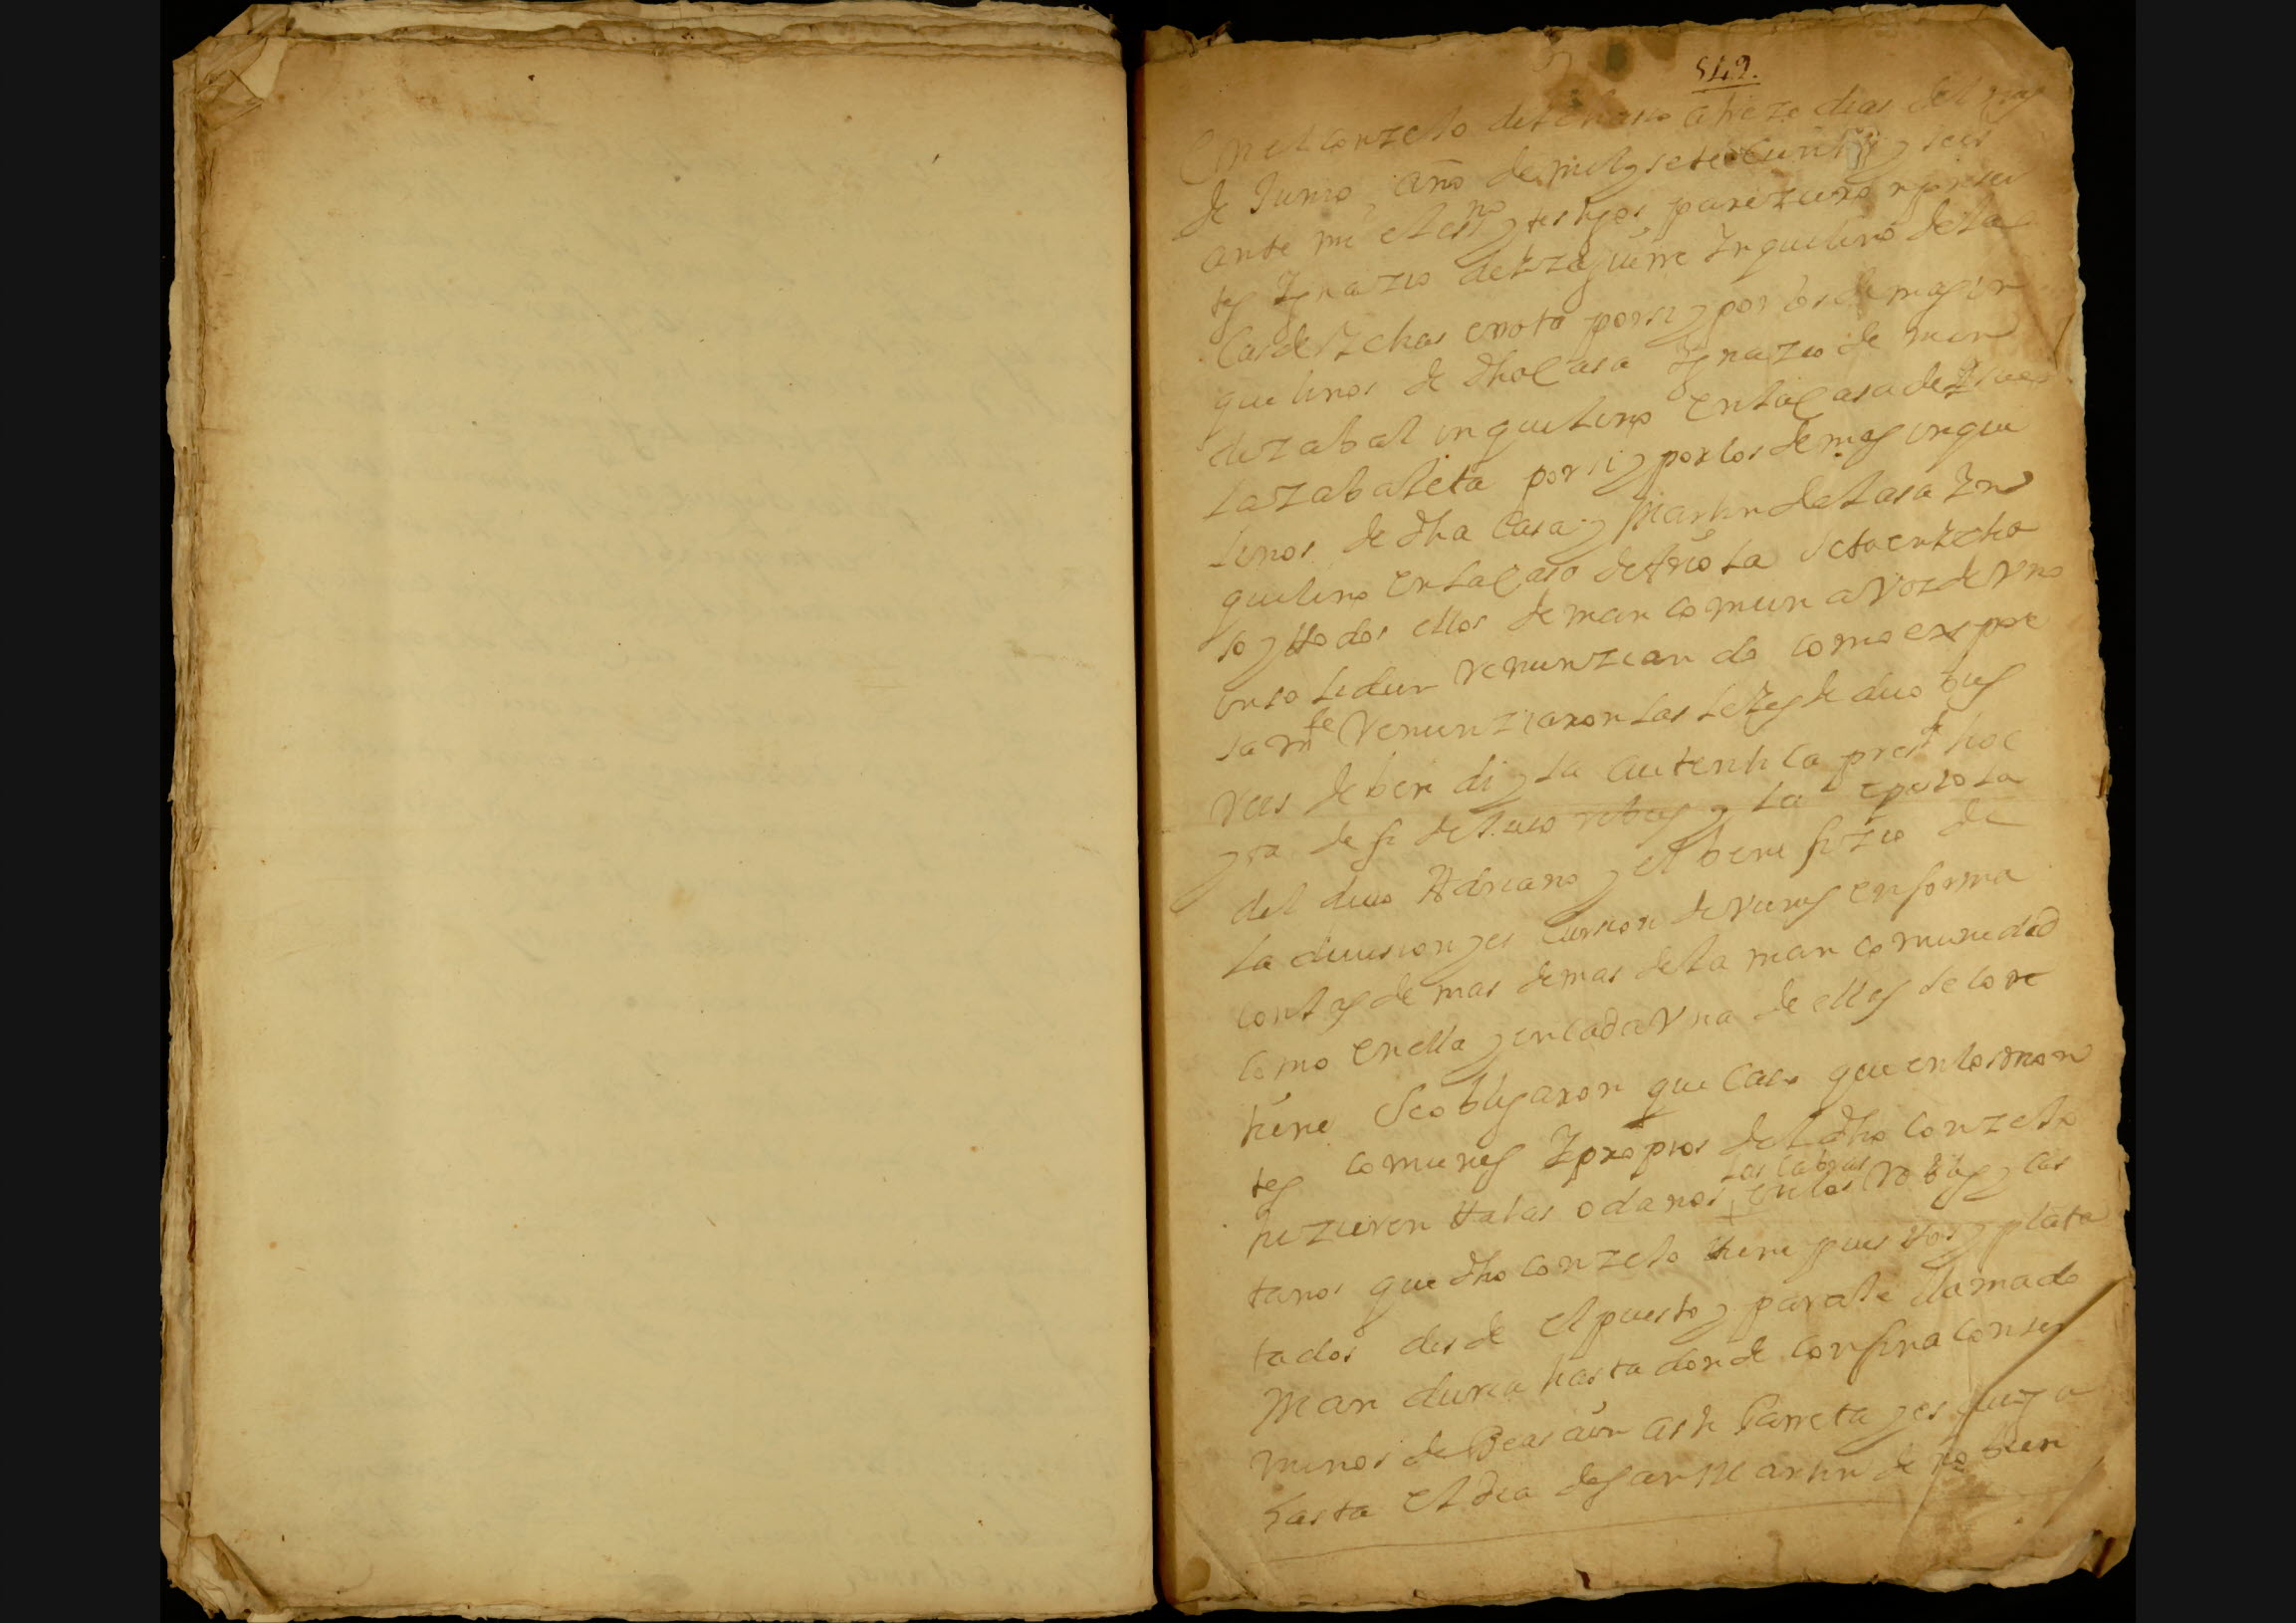 542.
En el conzejo de a treze dias del mes
de Junio, año de mil y setecientos y seis
ante mi el essno y testigos parezieron pressen
tes Ygnazio de Yzaguirre Ynquilino de la
Casa de Echas errota por si y por los demas in
quilinos de dha Casa Ygnazio de men
dizabal inquilino en la Casa de
la zabaleta por si y por los demas inqui
linos de dha Casa y Martin de Lasa Yn
quilino en la Casa de Arriola de to en dho
so y todos ellos de man comun a voz de Vno
in solidun renunziando como expre
samte Renunziaron las leyes de duobus
rreis debendi y la autentica presste hoc
yta de fide jusoribus y la epistola
del diuo Adriano y el benefizio de
la diuision y escursion de vienes en forma
con las demas demas de la man comunidad
como en ella y en cada Vna de ellas se con
tiene Se obligaron que caso que en los mon
tes comunes Y propios del dho conzejo
hizieren talas o daños las cabras en los Robles y cas
taños que dho conzejo tiene puestos y planta
tados desde el puesto y paraje llamado
Manduria hasta donde confina con ter
minos de Beasain asti Carreta y es
hasta el dia de san Martin de nobien